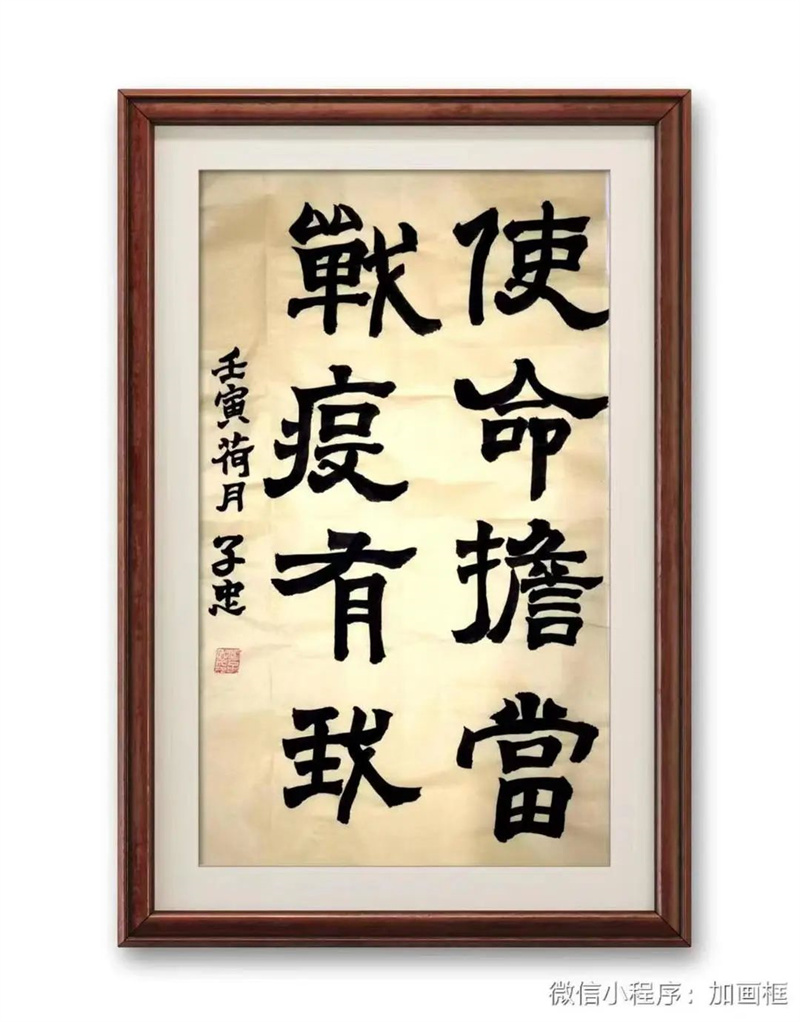 使命擔當
戰疫有我
壬寅荷月 子忠
微信小程序：加画框